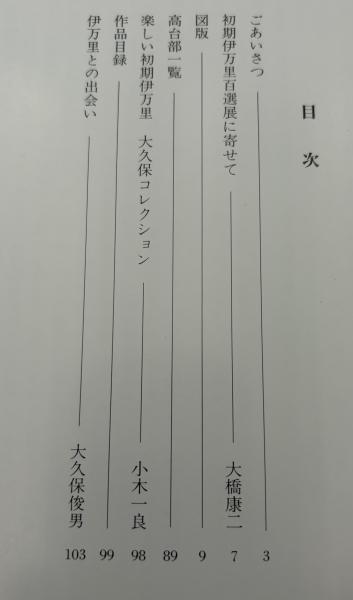 目次
ごあいさつ 3
初期伊万里百選展に寄せて 大橋康二 7
図版 9
高台部一覧 89
楽しい初期伊万里 大久保コレクション 小木一良 98
作品目録 99
伊万里との出会い 大久保俊男 103